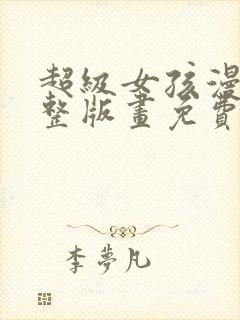 超級女孩漫
整版畫免費
李夢凡